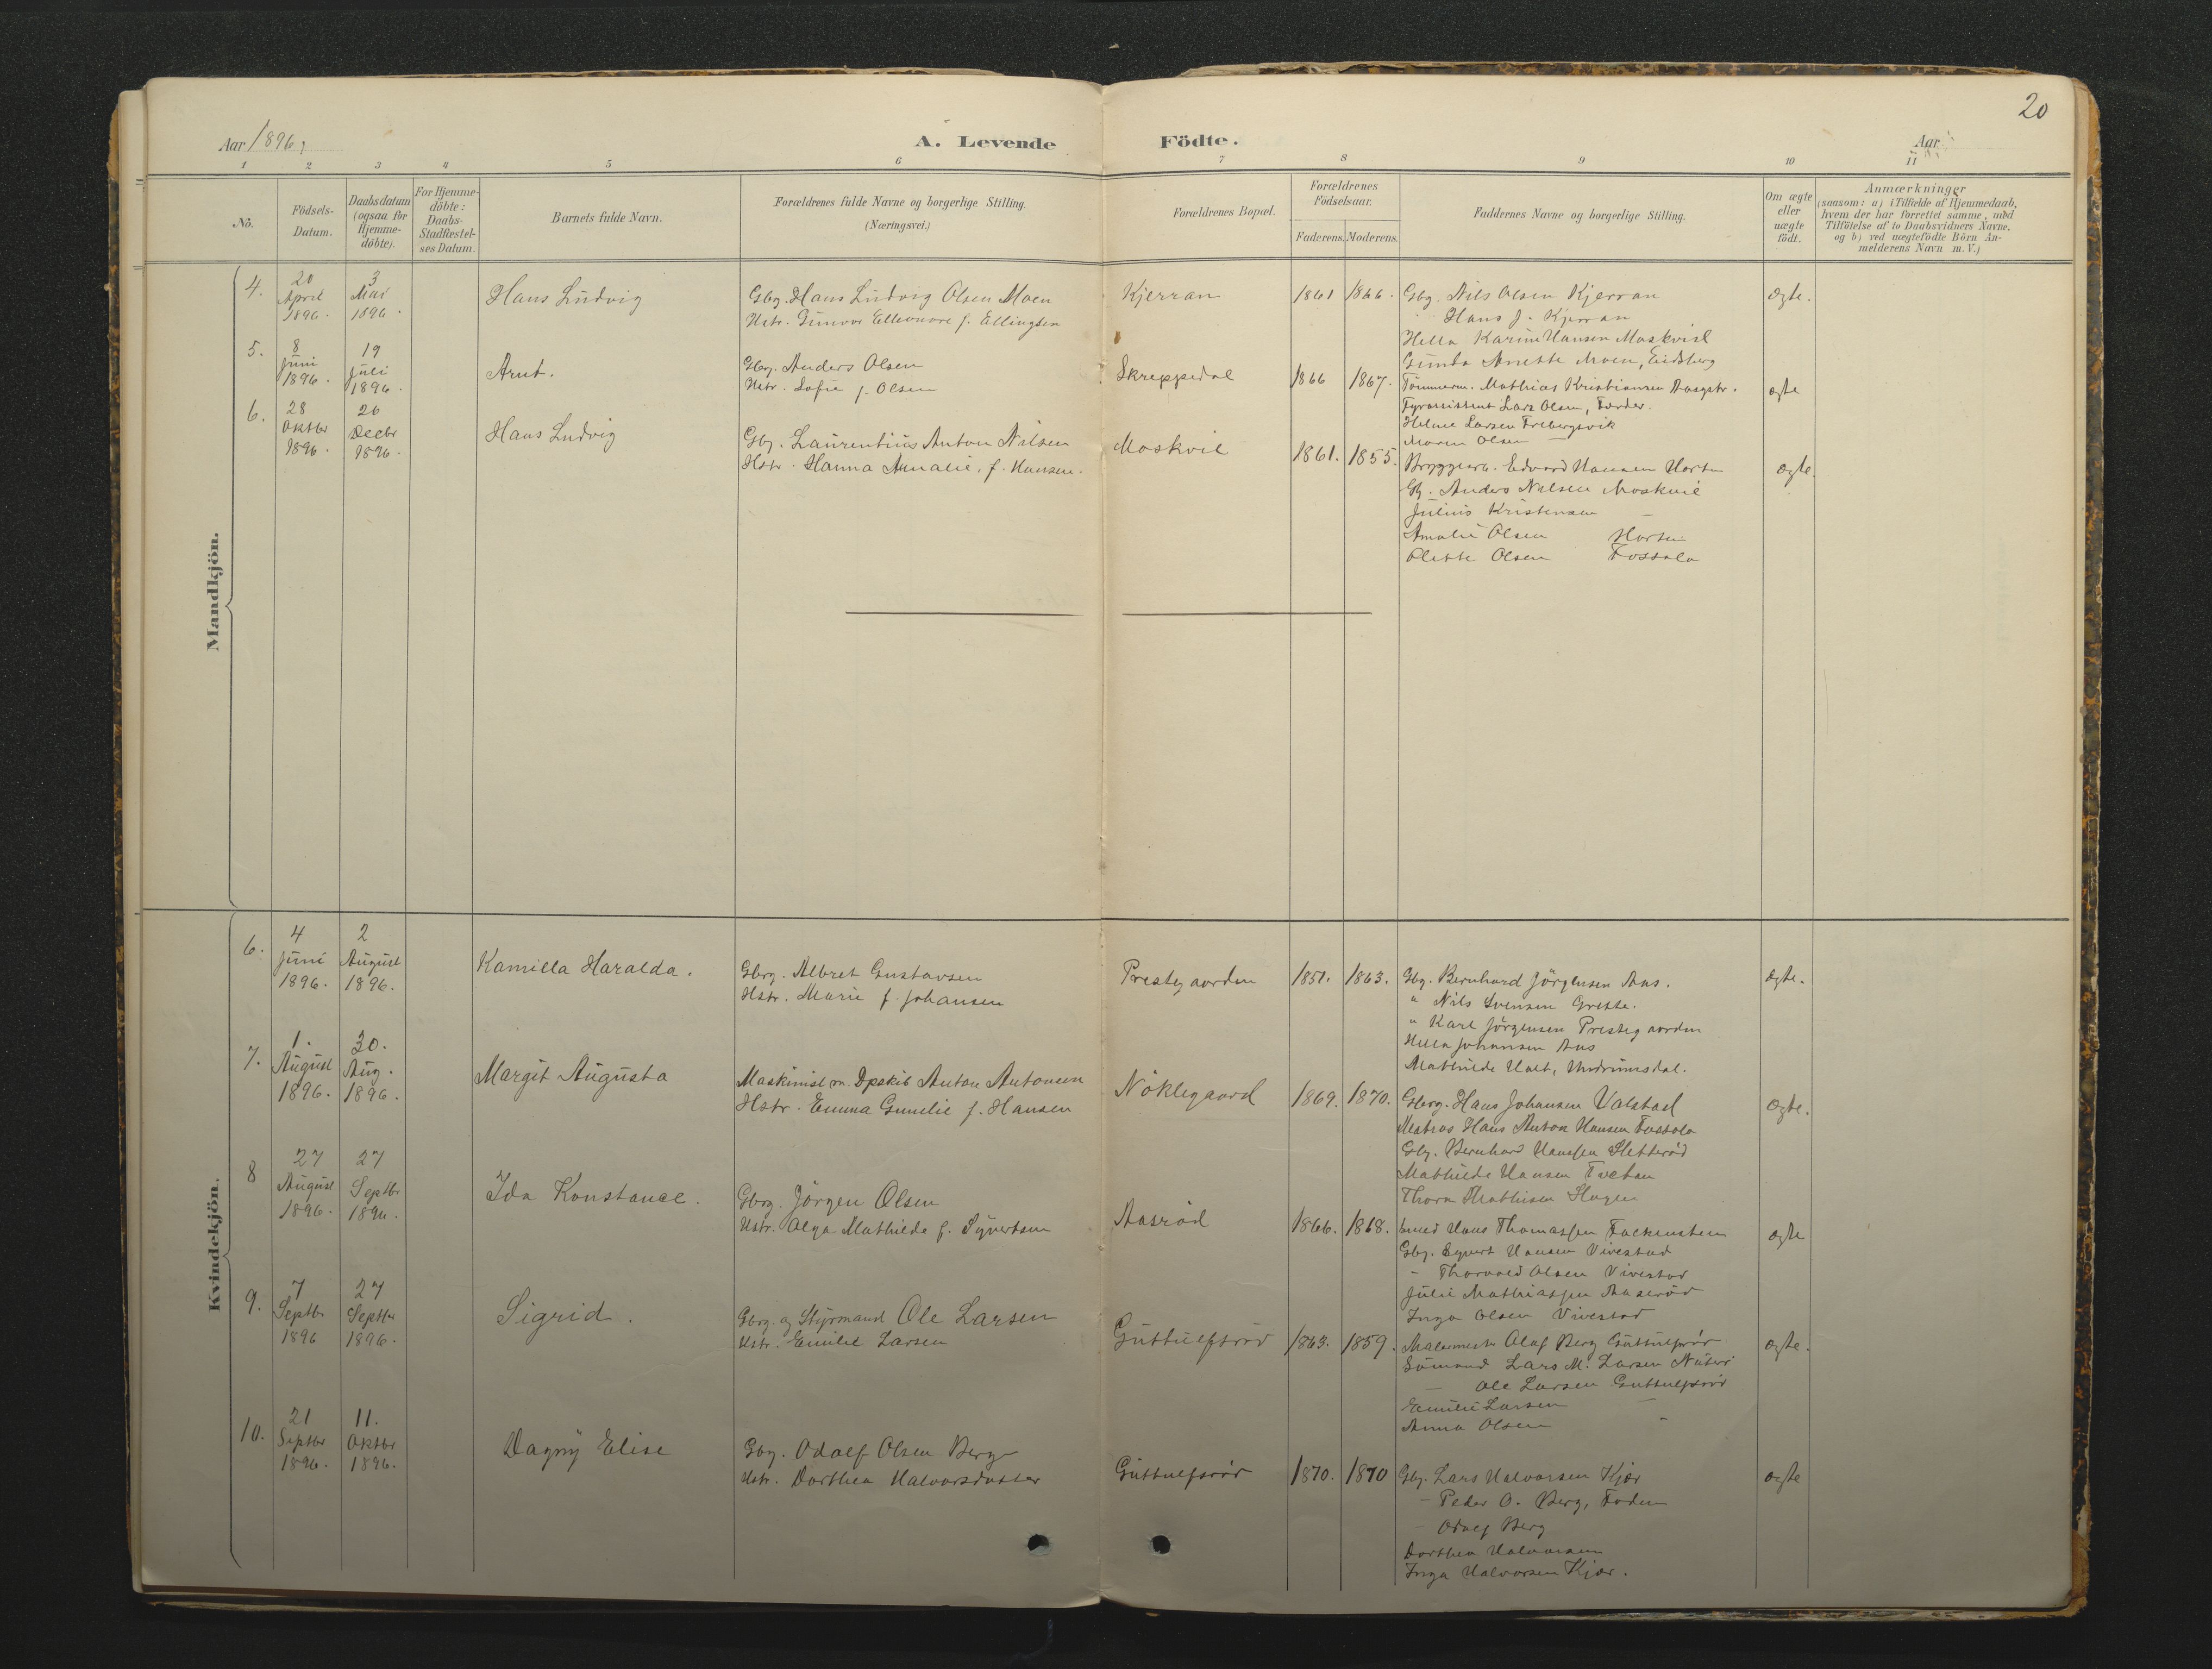 20
Aar 1896,
A. Levende Födte.
Aar
1 2 3 4 5 6 7 8 9 10 11
No.
Födsels-
Datum.
Daabsdatum
(ogsaa for
Hjemme-
döbte).
For Hjemme-
döbte:
Daabs-
Stadfæstel-
ses Datum.
Barnets fulde Navn.
Forældrenes fulde Navne og borgerlige Stilling.
(Næringsvei.)
Forældrenes Bopæl.
Forældrenes
Födselsaar.
Faderens. Moderens.
Faddernes Navne og borgerlige Stilling.
Om ægte
eller
uægte
födt.
Anmærkninger
(saasom: a) i Tilfælde af Hjemmedaab,
hvem der har forrettet samme, med
Tilföielse af to Daabsvidners Navne,
og b) ved uægtefödte Börn An-
melderens Navn m. V.)
Mandkjön.
4.
20
April
1896.
3
Mai
1896.
Hans Ludvig
Gbg. Hans Ludvig Olsen Moen
Hstr. Gunvor Elleonore f. Ellingsen
Kjerran
1861 1866.
Gbg. Nils Olsen Kjerran
Hans J. Kjerran
Hella Karine Hansen Moskvil
Gunda Anette Moen, Eidsberg
ægte.
5.
8
Juni
1896.
19
Juli
1896.
Arnt.
Gbg. Anders Olsen
Hstr. Sofie f. Olsen
Skreppedal
1866 1867.
Tömmerm. Mathias Kristiansen Aasgstr.
Fyrassistent Lars Olsen, Færder.
Helene Larsen Frebergsvik
Maren Olsen —
ægte
6.
28
Oktbr
1896.
26
Decbr
1896.
Hans Ludvig
Gbg. Laurentius Anton Nilsen
Hstr. Hanna Amalie, f. Hansen.
Moskvil
1861. 1855.
Bryggearb. Edvard Hansen Horten
Gb. Anders Nilsen Moskvil
Julius Kristensen —
Amalie Olsen Horten
Olette Olsen Fossala
ægte.
Kvindekjön.
6.
4
Juni
1896.
2
August
1896.
Kamilla Haralda.
Gbrg. Albret Gustavsen
Hstr. Marie f. Johansen
Prestegaarden
1851. 1863.
Gbg. Bernhard Jörgensen Aas.
" Nils Svensen Grette.
" Karl Jörgensen Prestegaarden
Hella Johansen Aas
Mathilde Holt, Undrumsdal.
ægte.
7.
1.
August
1896.
30.
Aug.
1896.
Margit Augusta
Maskinist m. Dpskib Anton Antonsen
Hstr. Emma Gunelie f. Hansen
Nöklegaard
1869. 1870.
Gbrg. Hans Johansen Valstad
Matros Hans Anton Hansen Fossala
Gbg. Bernhard Hanssen Sletteröd
Mathilde Hansen Tvetan
Thora Mathisen Skogen
ægte.
8
27
August
1896.
27
Septbr
1896.
Ida Konstance.
Gbrg. Jörgen Olsen
Hstr. Olga Mathilde f. Syvertsen
Aasröd
1866. 1868.
Smed Hans Thomassen Falkensten
Gbg. Syvert Hansen Vivestad
- Thorvald Olsen Vivestad
Julie Mathiassen Aaseröd
Inga Olsen Vivestad
ægte
9.
7
Septbr
1896
27
Septbr
1896.
Sigrid.
Gbrg. og Styrmand Ole Larsen
Hstr. Emilie Larsen
Guttulfsröd
1863. 1859.
Malermester Olaf Berg Guttulfsröd
Sömand Lars M. Larsen Nøterö
— Ole Larsen Guttulfsröd
Emilie Larsen —
Anna Olsen -
ægte.
10.
21
Septbr
1896.
11.
Oktbr
1896.
Dagny Elise
Gbg. Odolf Olsen Berg
Hstr. Dorthea Halvorsdatter
Guttulfsröd
1870. 1870
Gbg. Lars Halvorsen Kjær
- Peder O. Berg, Foden
- Odolf Berg
Dorthea Halvorsen
Inga Halvorsen Kjær.
ægte